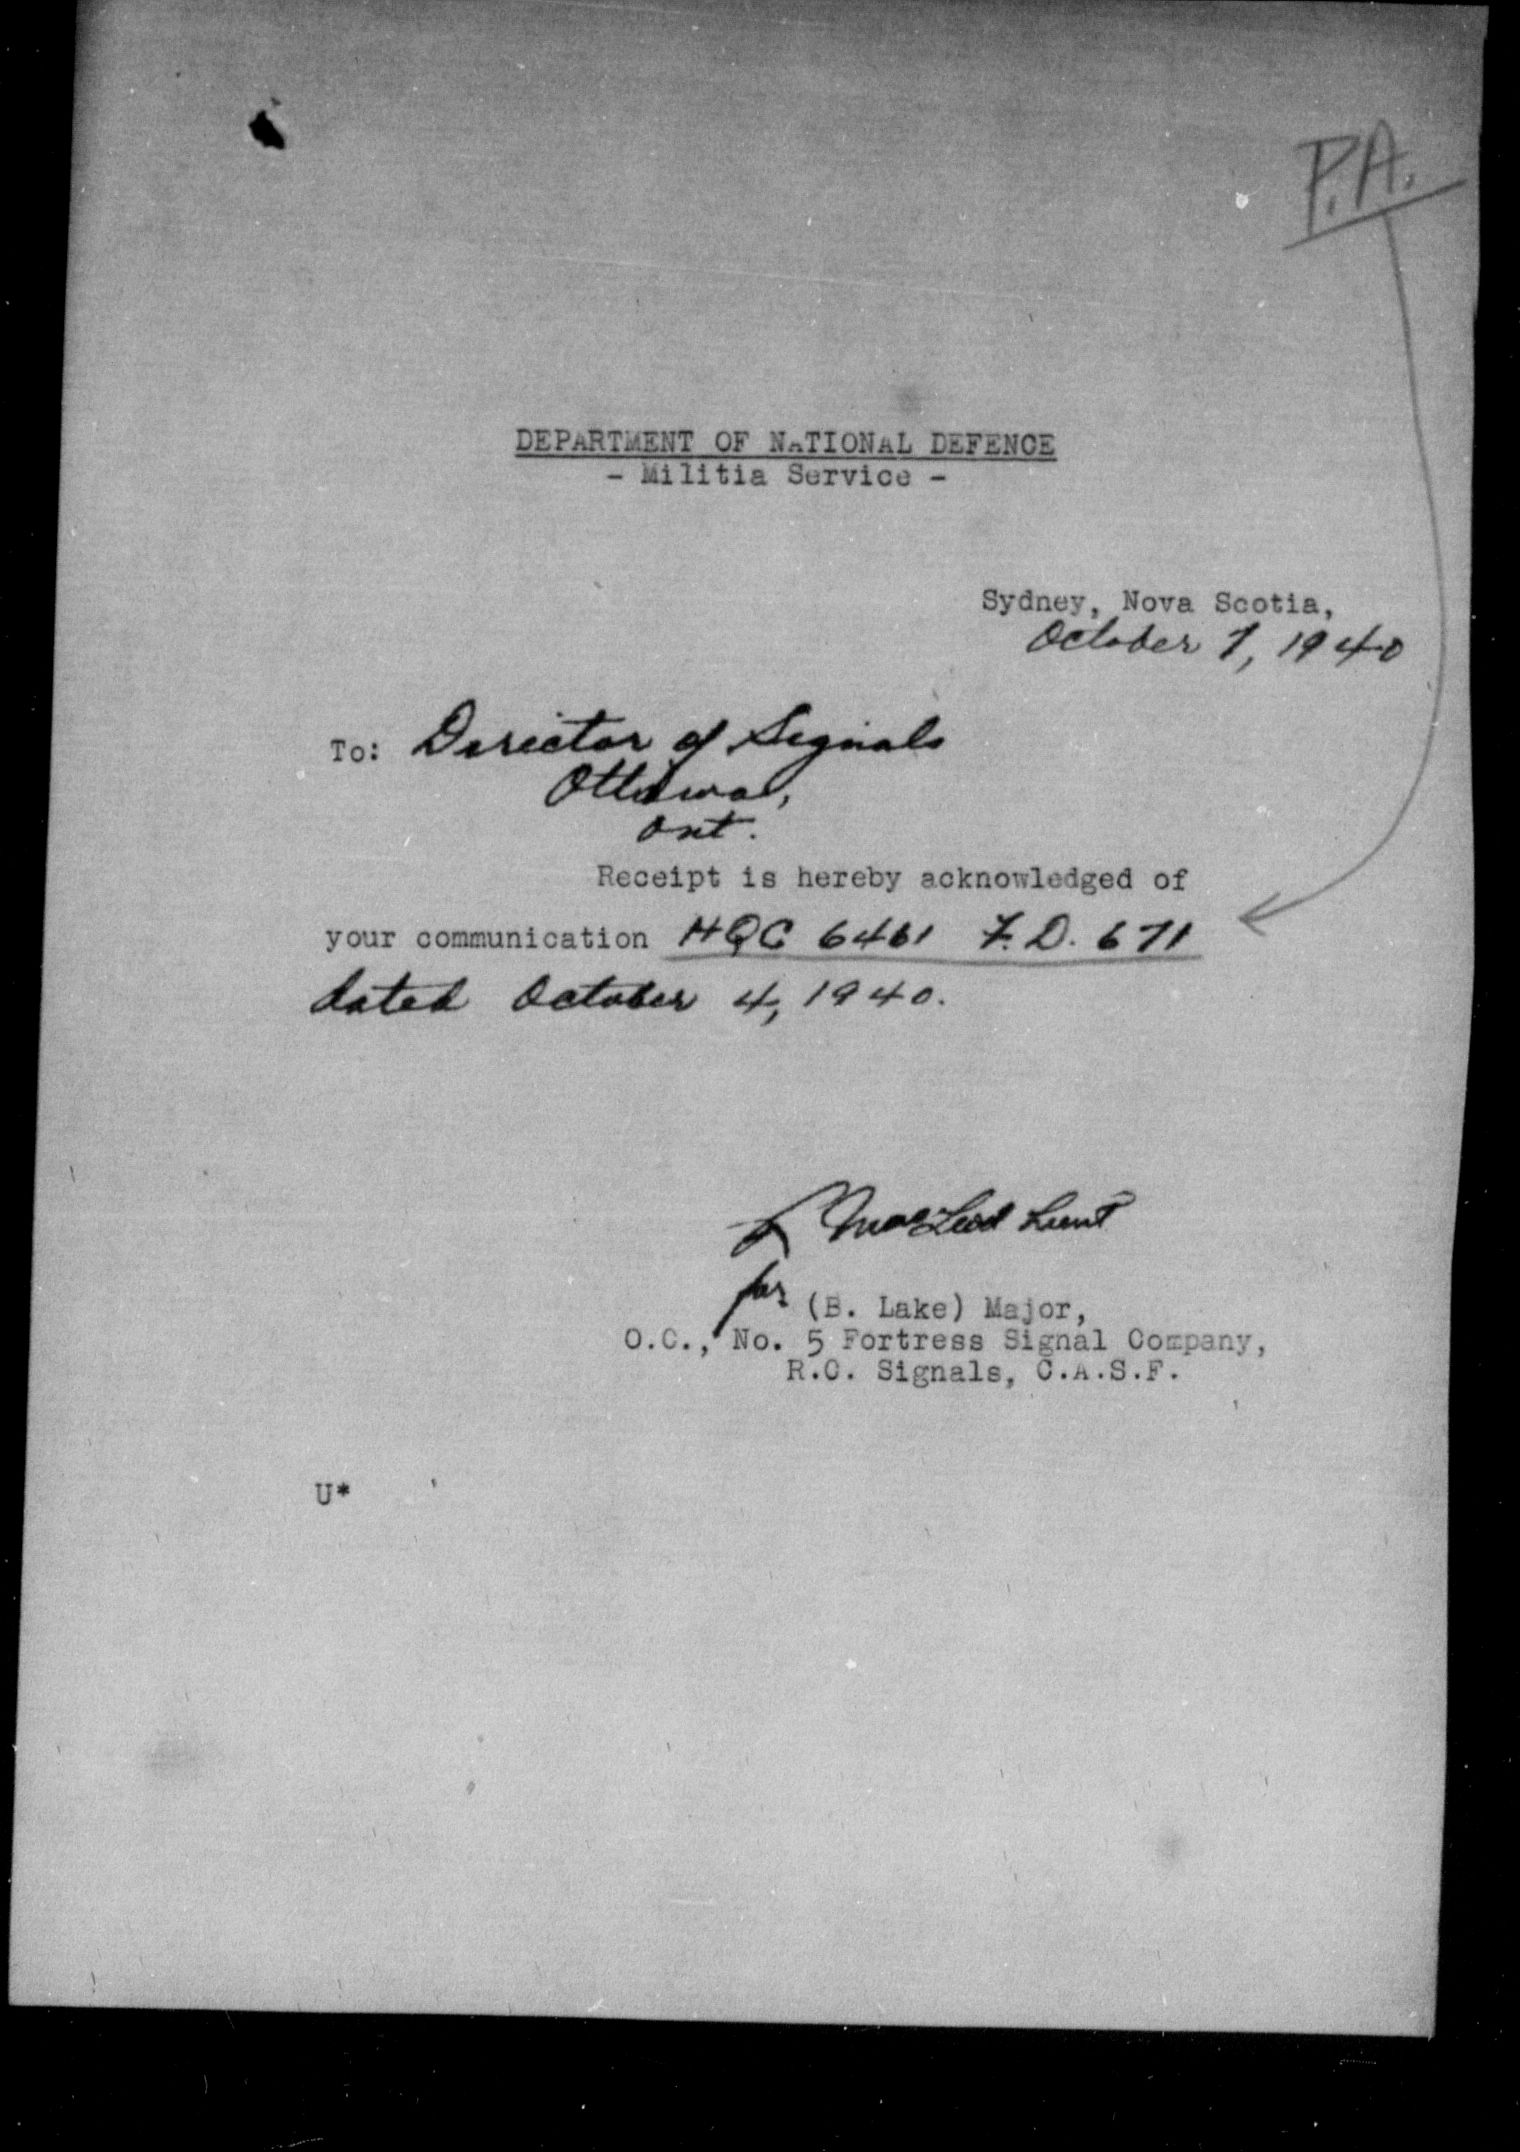 P.A.
DEPARTMENT OF NATIONAL DEFENCE
- Militia Service -
Sydney, Nova Scotia,
October 7, 1940
To: Director of Signals
Ottawa,
Ont.
Receipt is hereby acknowledged of
your communication HQC 6461 F.D. 671
dated October 4, 1940.
MacLeod Lieut
for (B. Lake) Major,
O.C., No. 5 Fortress Signal Company,
R.C. Signals, C.A.S.F.
U*